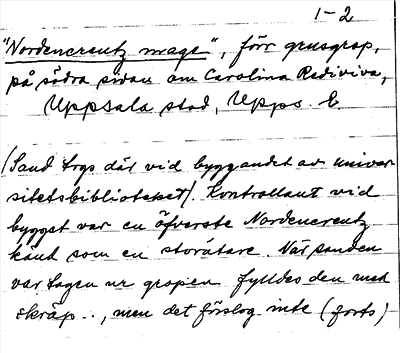 1-2
"Nordencreutz mage", förr grusgrop,
på södra sidan om Carolina Rediviva,
Uppsala stad, Upps. l.
(Sand togs där vid byggandet av univer-
sitetsbiblioteket). Kontrollant vid
bygget var en öfverste Nordencreutz
känd som en storätare. När sanden
var tagen ur gropen fylldes den med
skräp.., men det förslog inte (forts)